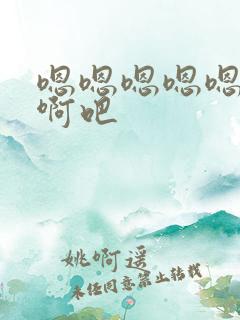 嗯嗯嗯嗯嗯
啊吧
姚啊遥
未经同意禁止转载